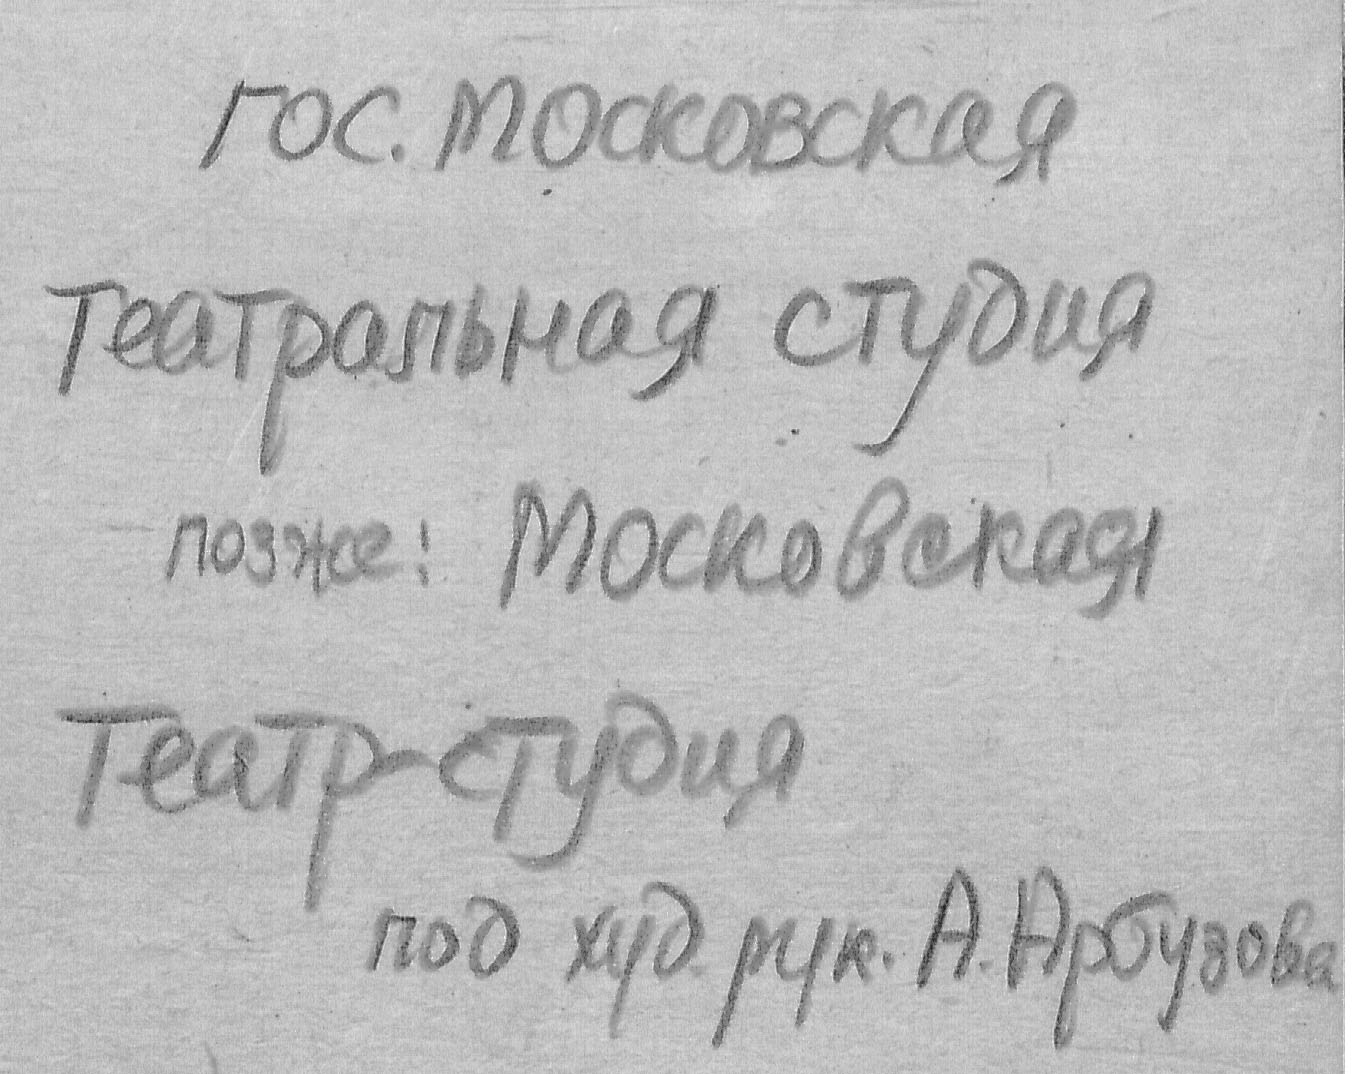 Гос. Московская
театральная студия
позже: Московская
Театр-студия
под худ. рук. А. Арбузова